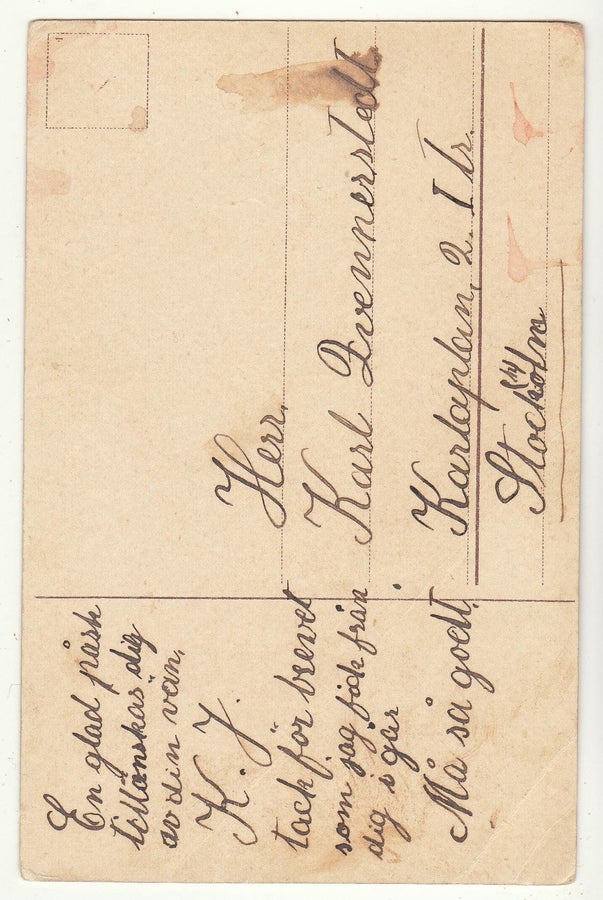 En glad påsk
tillönskas dig
av din vän,
K. J.
tack för brevet
som jag fick från
dig i går.
Må så gott.
Herr.
Karl Qvennerstedt
Karlaplan, 2. I tr.
Stockolm